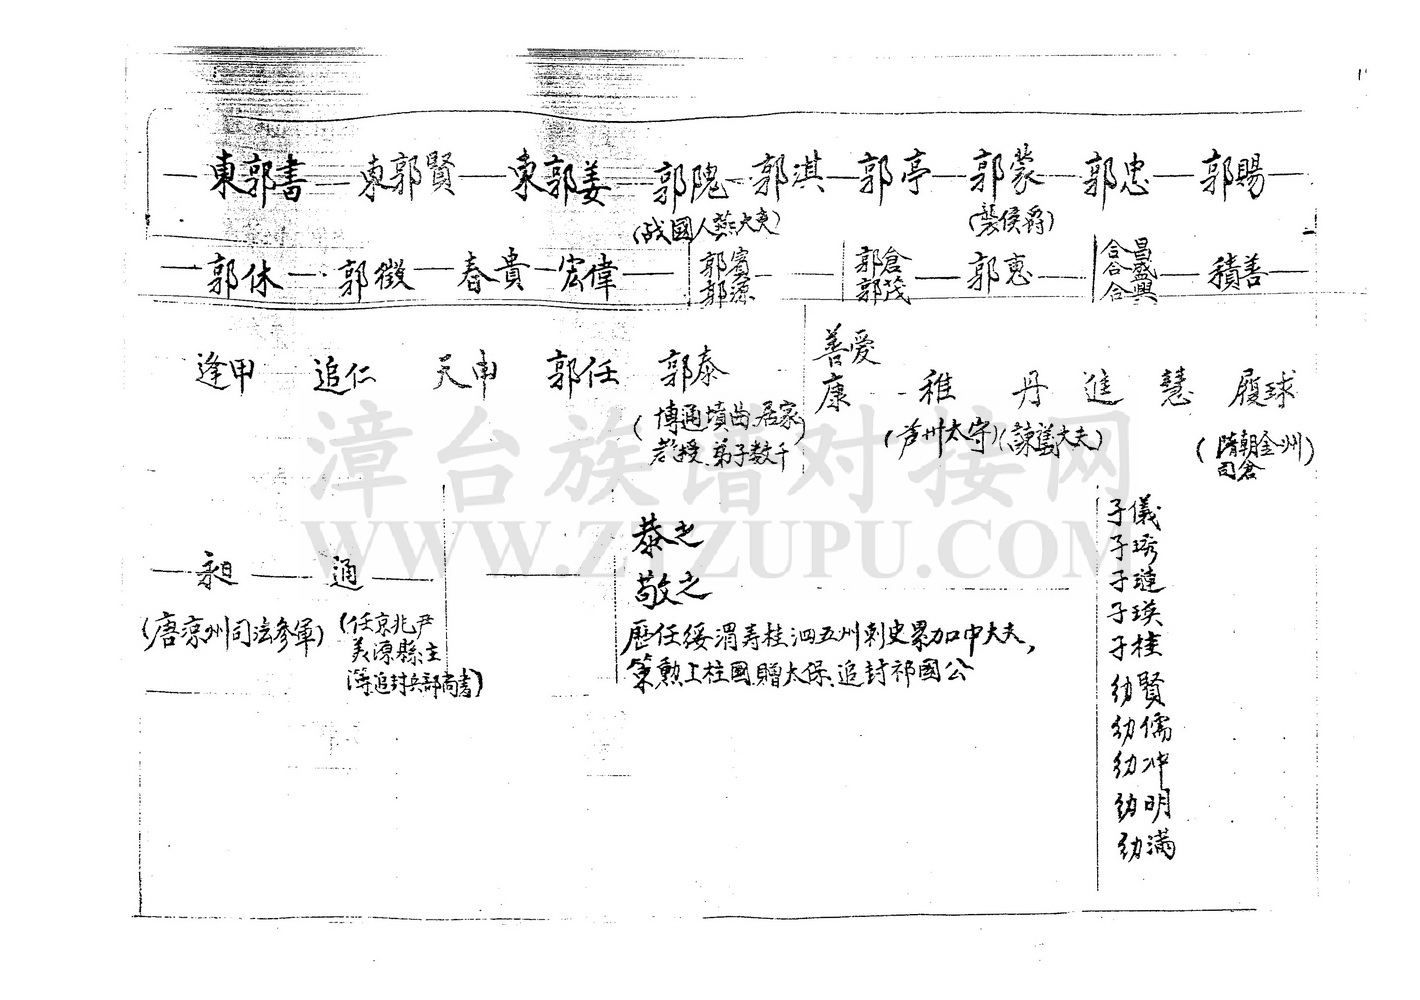 東郭書 東郭賢 東郭姜 郭隗 郭淇 郭亭 郭蒙 郭忠 郭賜
(战國人燕大夫) (襲侯爵)
郭休 郭徵 春貴 宏偉 郭賓 郭倉 郭惠 合昌 積善
郭源 郭茂 合盛
合興
逢甲 追仁 天申 郭任 郭泰 善愛 康 稚 丹 進 慧 履球
(博通墳典.居家 (芦州太守) (諫議大夫) (隋朝金州
教授.弟子数千) 司倉)
漳台族谱对接网
WWW.ZTZUPU.COM
昶 通
(唐涼州司法參軍) (任京兆尹
美源縣主
簿追封兵部尚書)
恭之
敬之
歷任綏渭壽桂泗五州刺史累加中大夫,
策勲上柱國.贈太保.追封祁國公
子儀
子琇
子璉
子瑛
子桂
幼賢
幼儒
幼冲
幼明
幼滿